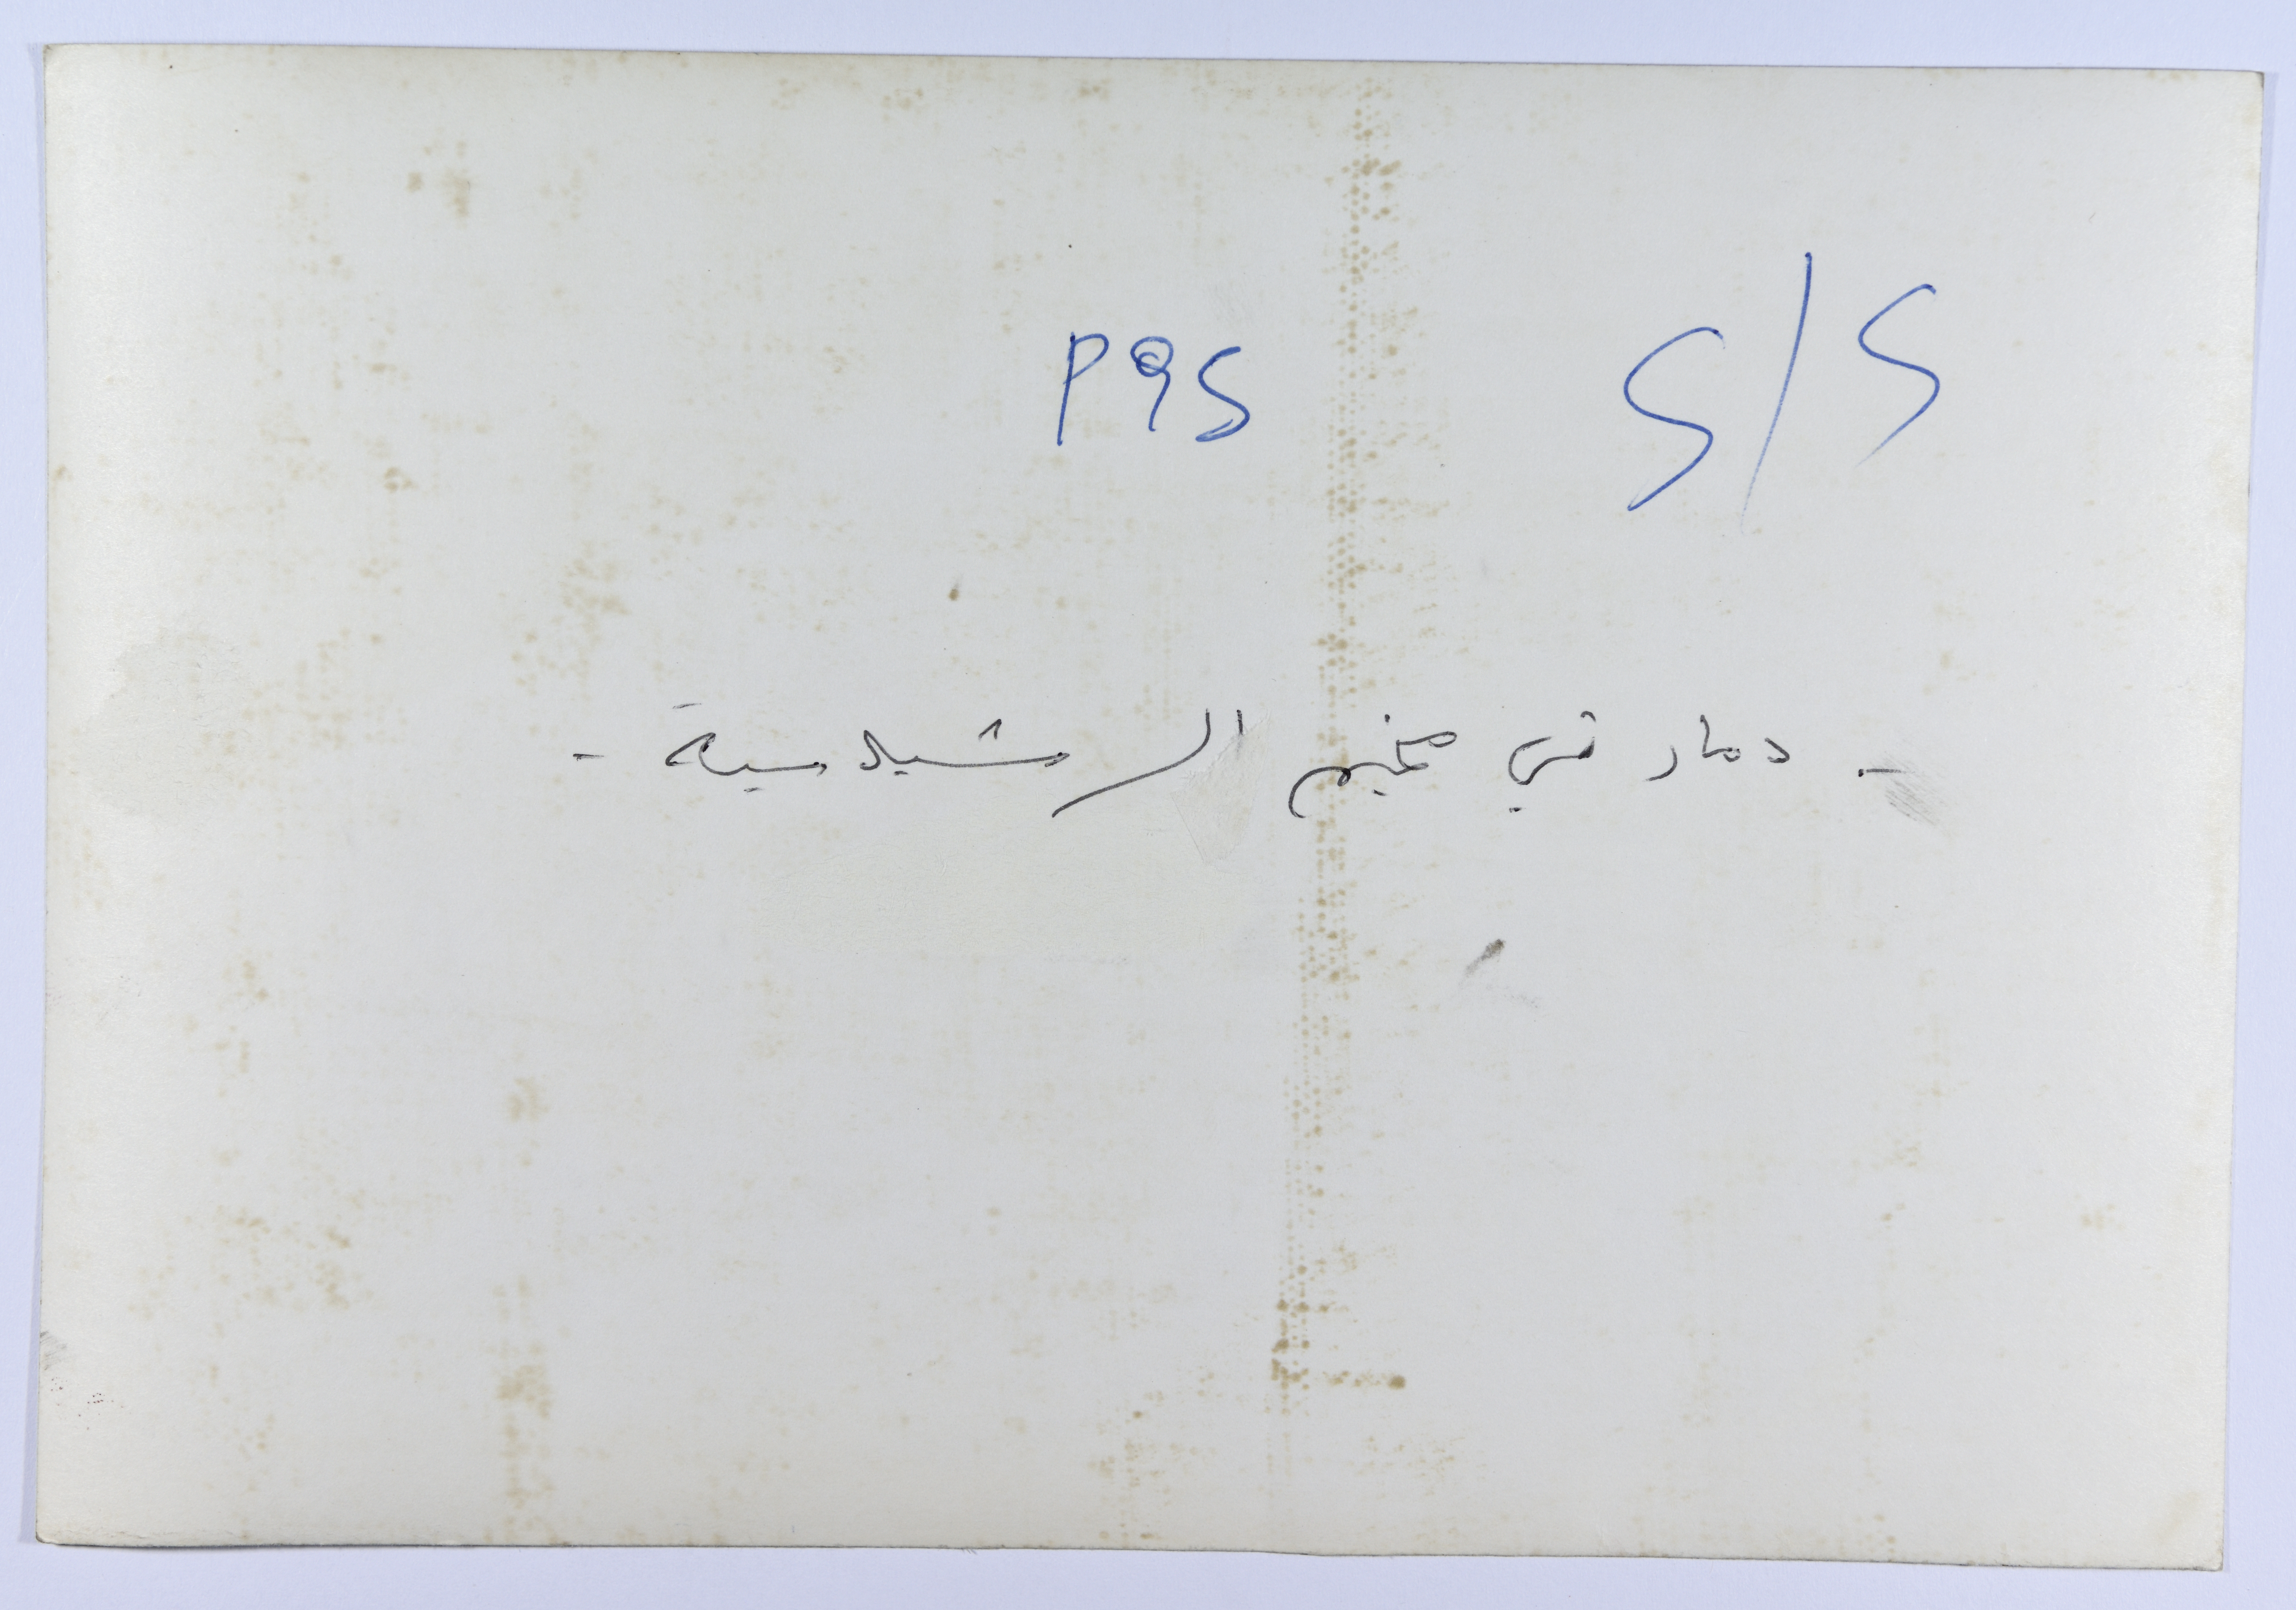 P9S S/S
- دمار في مخيم الرشيدية -